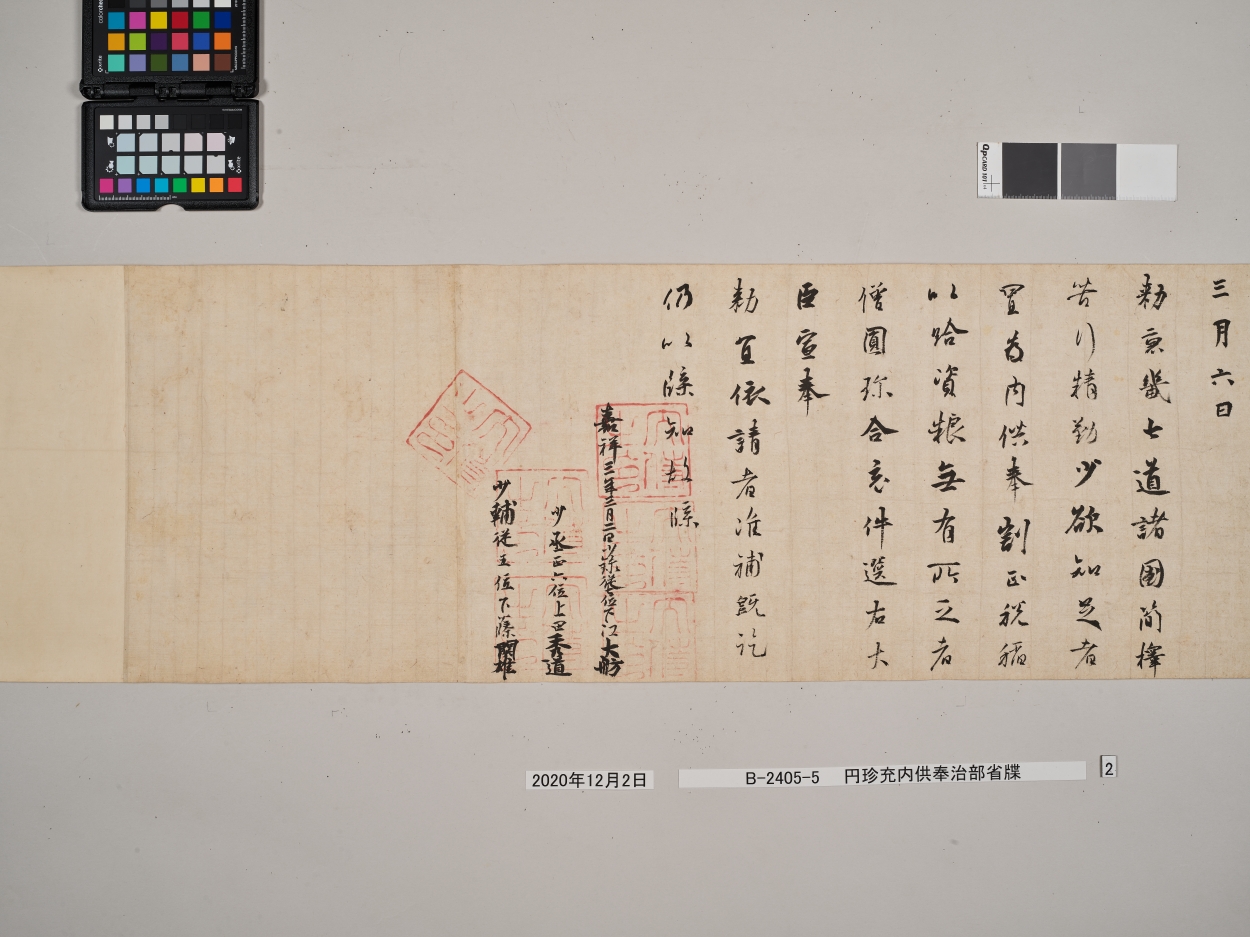 三月六日
勅稟畿七道諸國簡擇
苦行精勤少欲知足者
置為内供奉割正税稲
以給資粮無有所乏者
僧圓珍合衰件選右大
臣宣奉
勅宜依請者准補既訖
仍以牒知故牒
嘉祥三年三月二日少録従位下江大舫
少丞正六位上田秀道
少輔従五位下藤關雄
2020年12月2日
B-2405-5 円珍充内供奉治部省牒
2
QPCARD 101